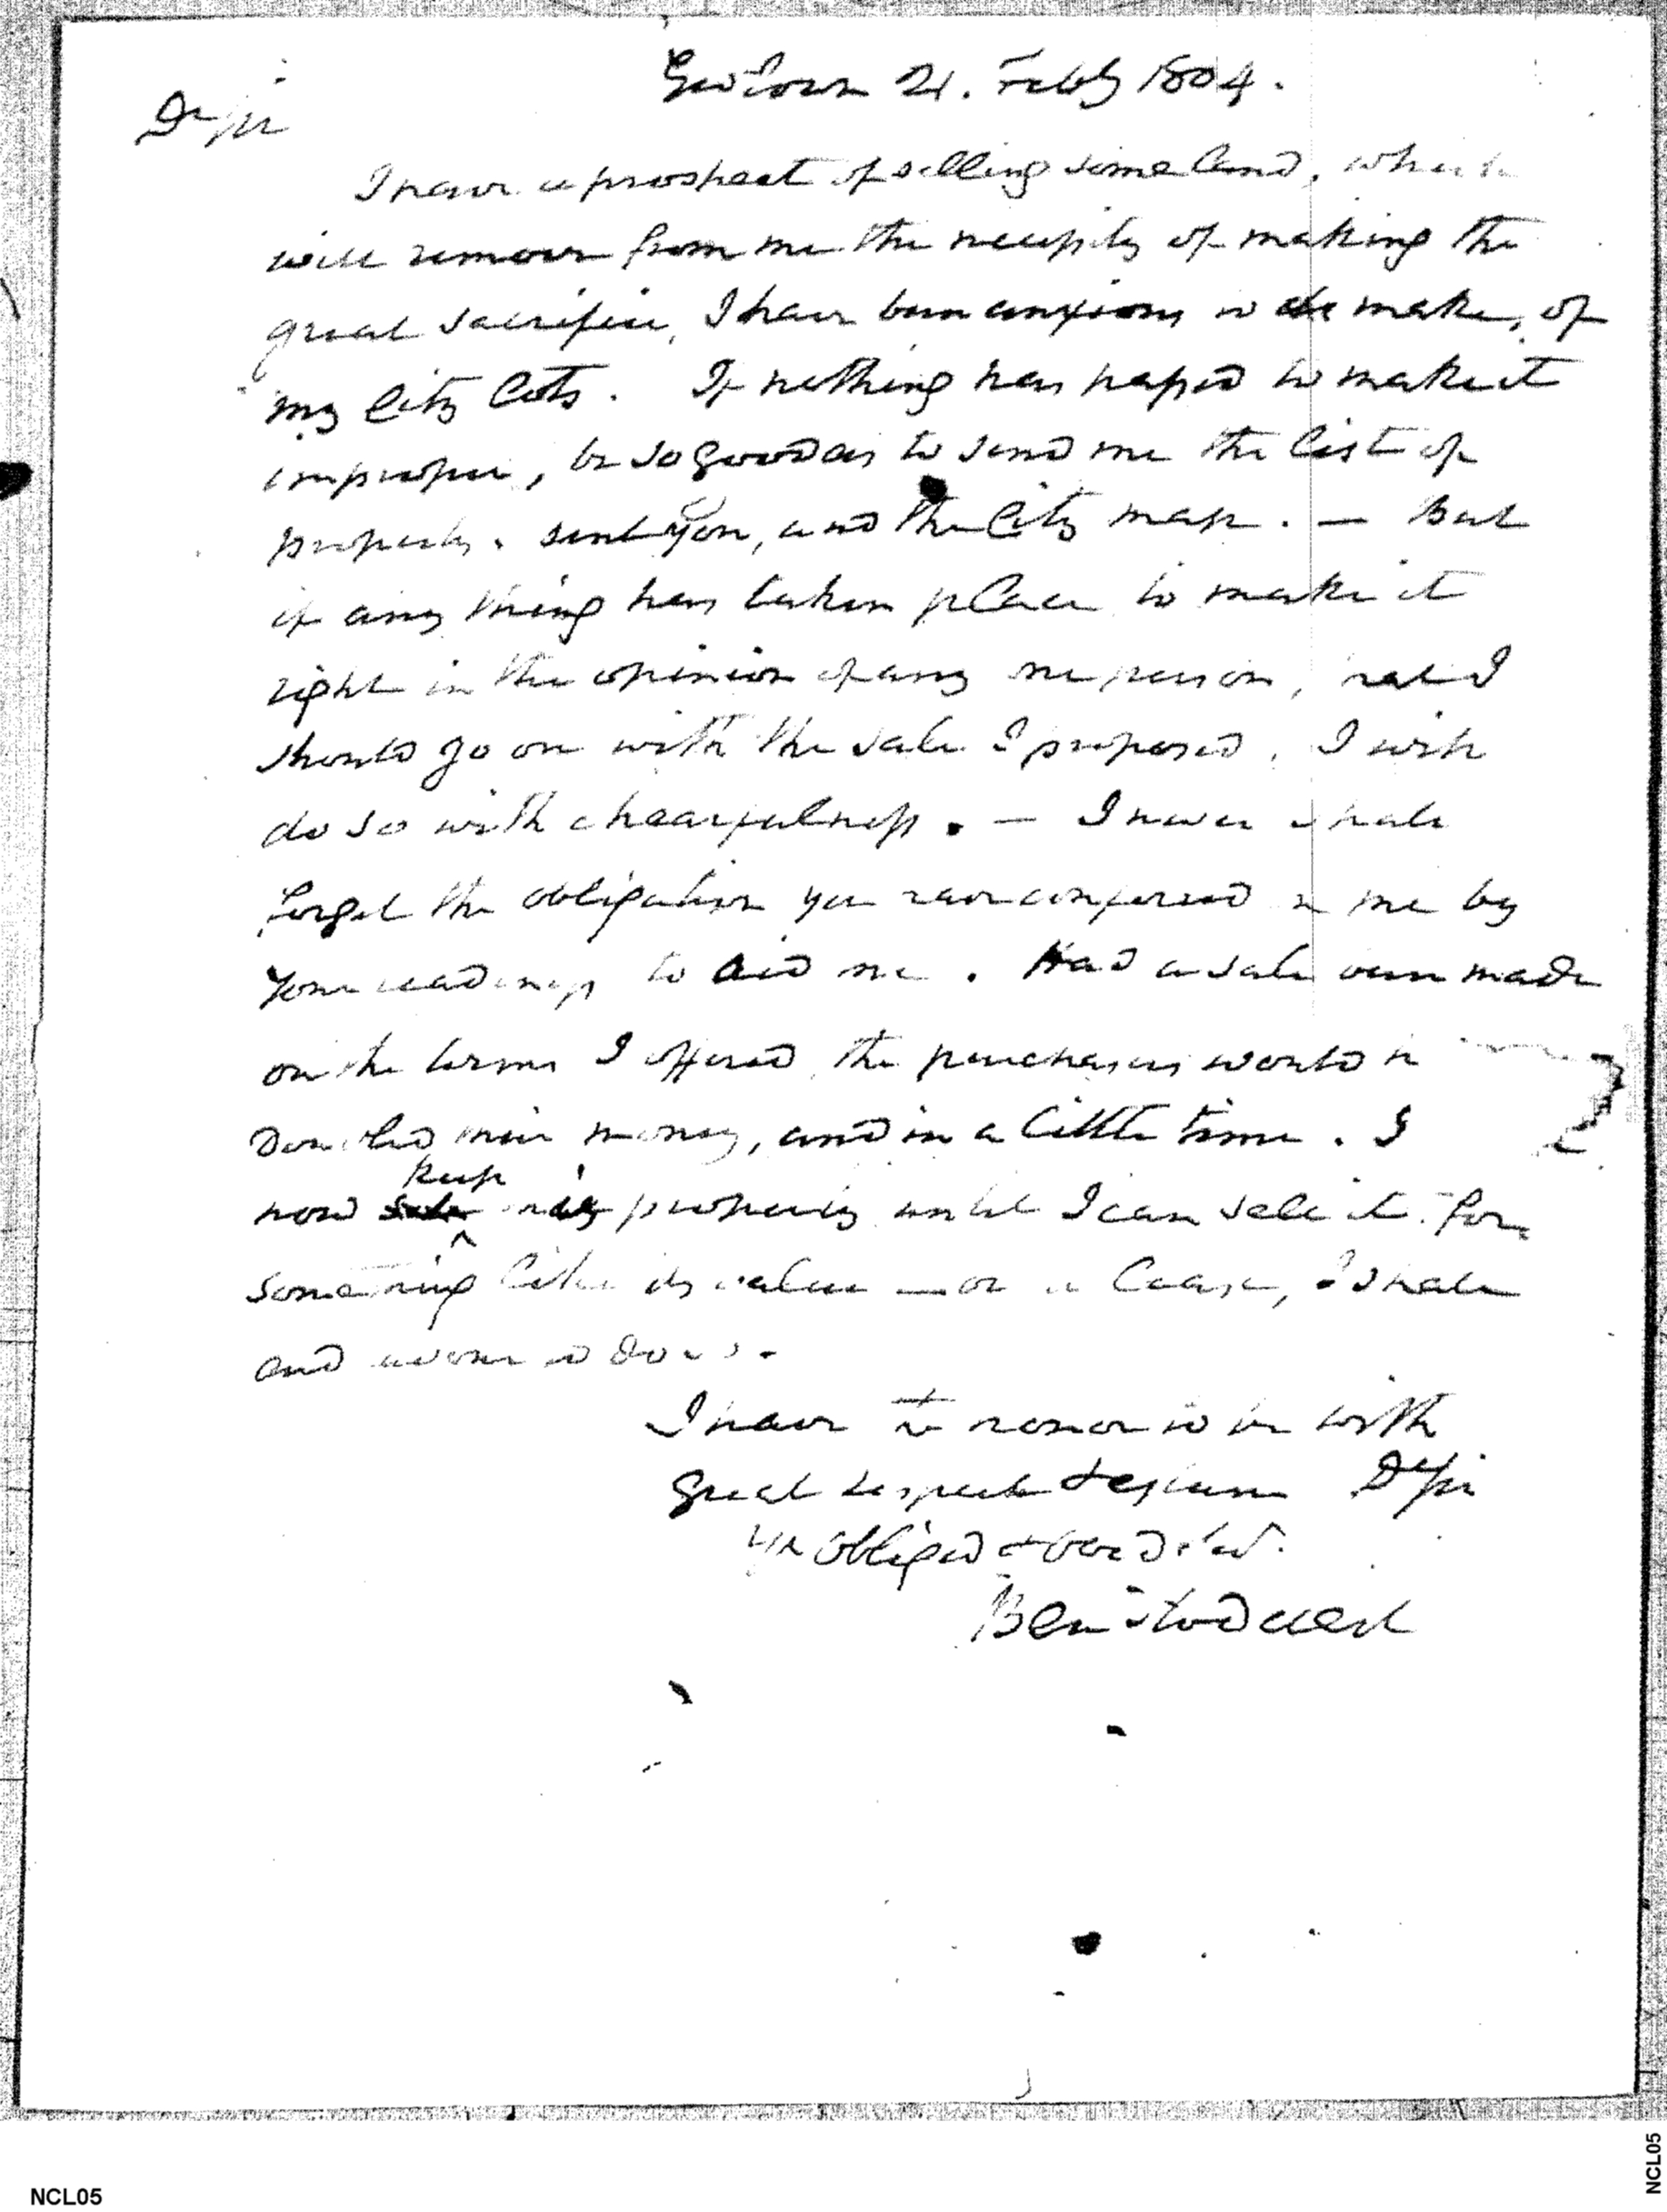 Geo Town 21. Feby 1804.
Dr Sir
I have a prospect of selling some land, which
will remove from me the necessity of making the
great sacrifice, I have been anxious to make, of
my City lots. If nothing has hapned to make it
improper, be so good as to send me the list of
property sent you, and the City map. — But
if any thing has taken place to make it
right in the opinion of any one person, that I
should go on with the sale I proposed, I will
do so with chearfulness. — I never shall
forget the obligation you have confered on me by
your readiness to aid me. Had a sale been made
on the terms I offered, the purchasers would h
doubled their money, and in a little time. I
keep
now my property until I can sell it for
something like its value — or a Lease, I shall
and
I have the honor to be with
great respect & esteem Dr Sir
yr obliged & obed. Ser.
Ben Stoddert
NCL05
NCL05